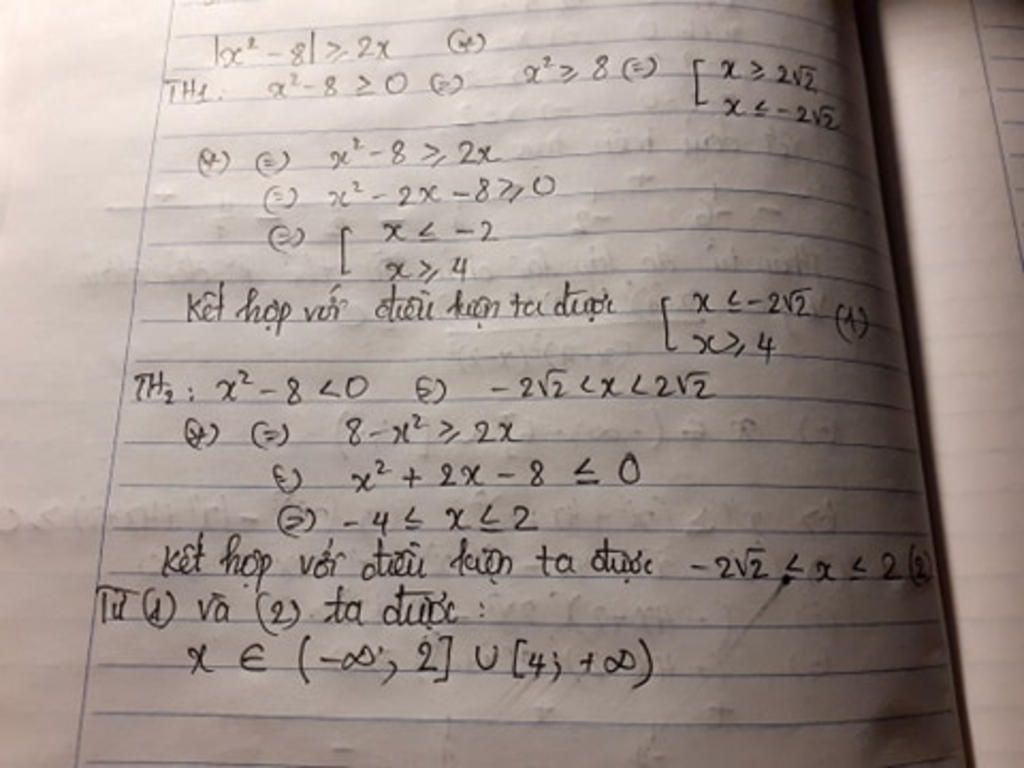 |x² - 8| ≥ 2x (*)
TH1: x² - 8 ≥ 0 (=) x² ≥ 8 (=) [ x ≥ 2√2
x ≤ -2√2
(*) (=) x² - 8 ≥ 2x
(=) x² - 2x - 8 ≥ 0
(=) [ x ≤ -2
x ≥ 4
Kết hợp với điều kiện ta được [ x ≤ -2√2 (1)
x ≥ 4
TH2: x² - 8 < 0 (=) -2√2 < x < 2√2
(*) (=) 8 - x² ≥ 2x
(=) x² + 2x - 8 ≤ 0
(=) -4 ≤ x ≤ 2
Kết hợp với điều kiện ta được -2√2 < x ≤ 2 (2)
Từ (1) và (2) ta được :
x ∈ (-∞; 2] ∪ [4; +∞)